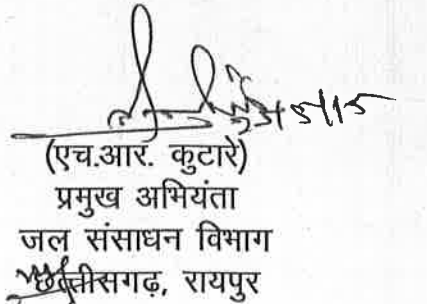 (एच.आर. कुटारे)
प्रमुख अभियंता
जल संसाधन विभाग
छत्तीसगढ़, रायपुर